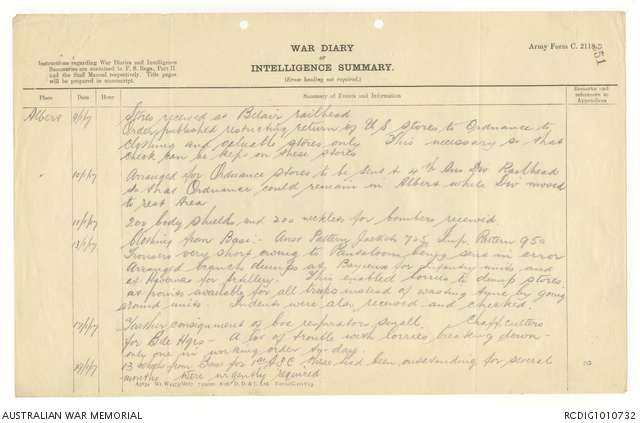 WAR DIARY
or
INTELLIGENCE SUMMARY.
(Erase heading not required.)
Army Form C. 2118.
51
Instructions regarding War Diaries and Intelligence
Summaries are contained in F. S. Regs., Part II.
and the Staff Manual respectively. Title pages
will be prepared in manuscript.
Place Date Hour Summary of Events and Information Remarks and references to Appendices
Albert 9/1/17 Stores received at Belair railhead
Order published restricting return of U.S. stores to Ordnance to
clothing and valuable stores only. This necessary so that
check can be kept on these stores
" 10/1/17 Arranged for Ordnance stores to be sent to 4th Div Railhead
so that Ordnance could remain in Albert while Div moved
to rest Area
11/1/17 200 body shields and 200 necklets for bombers received
13/1/17 Clothing from Base:- Aust Pattern Jackets 705 Imp. Pattern 950
Trousers very short owing to Pantaloons being sent in error
Arranged branch dumps at for Infantry units and
at for Artillery. This enabled lorries to dump stores
as available for all troops instead of wasting time by going
round units. Indents were also received and checked.
17/1/17 Further consignments of box respirators small. Chaff cutters
for Bde Hqrs - A lot of trouble with lorries breaking down -
only one in working order to-day.
19/1/17 13 from Base for 1st ASC. These had been outstanding for several
months & were urgently required
AUSTRALIAN WAR MEMORIAL
RCDIG1010732